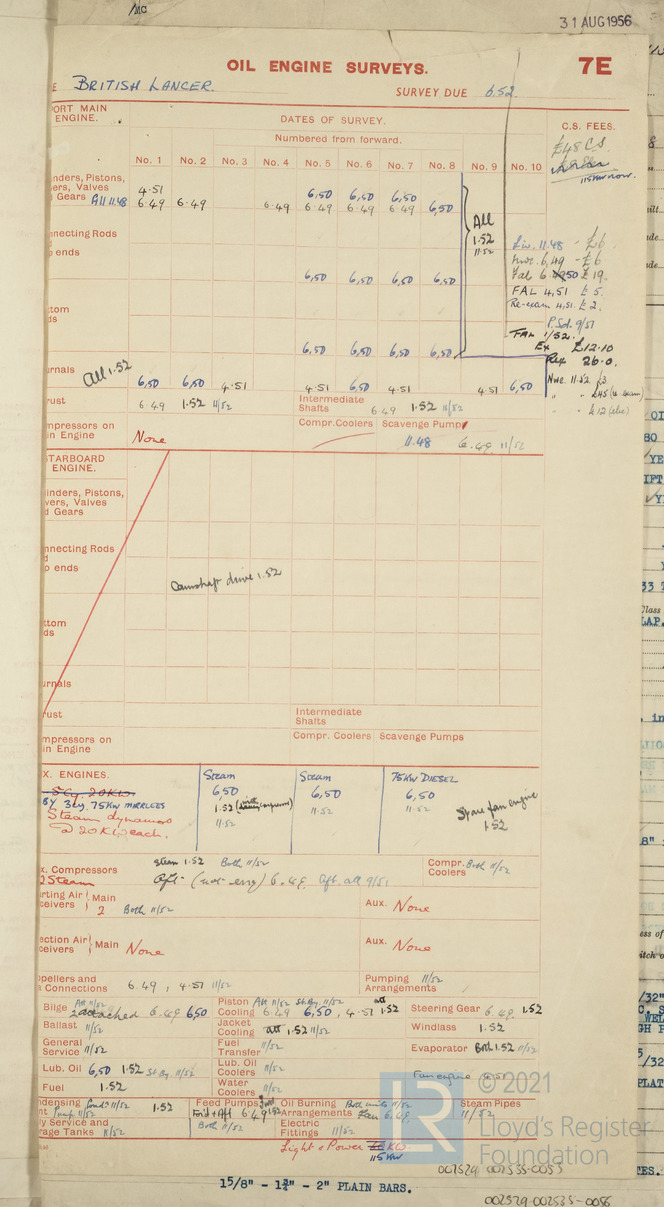 /MC
31 AUG 1956
OIL ENGINE SURVEYS.
7E
BRITISH LANCER.
SURVEY DUE 6.52
PORT MAIN
ENGINE.
DATES OF SURVEY.
C.S. FEES.
Numbered from forward.
£48 C.S.
No. 1 No. 2 No. 3 No. 4 No. 5 No. 6 No. 7 No. 8 No. 9 No. 10
115KW now.
nders, Pistons,
ers, Valves
Gears All 11.48
4.51 6,50 6,50 6,50
6.49 6.49 6.49 6.49 6.49 6.49 6,50
All
1.52
11.52
nnecting Rods
o ends
6,50 6,50 6,50 6,50
Liv. 11.48 - £6
Nwc. 6.49 - £6
Fal 6.50 £19.
FAL 4,51 £5.
Re-exam 4,51. £2.
P.Sd. 9/51
tom
ds
6,50 6,50 6,50 6,50
FAL 1/52.
Ex £12.10
Rex 26.0.
rnals
All 1.52
6,50 6,50 4.51 4.51 6,50 4.51 4.51 6,50
Nwc. 11.52 £3
£45 (4 exam)
£12 (elec)
rust
6.49 1.52 11/52
Intermediate
Shafts
6.49 1.52 11/52
mpressors on
in Engine
None
Compr. Coolers Scavenge Pumps
11.48 6.49 11/52
STARBOARD
ENGINE.
inders, Pistons,
vers, Valves
d Gears
nnecting Rods
d
p ends
Camshaft drive 1.52
ttom
ds
urnals
rust
Intermediate
Shafts
mpressors on
in Engine
Compr. Coolers Scavenge Pumps
X. ENGINES.
Steam Steam 75KW DIESEL
3 cy. 75KW MIRRLEES
Steam dynamos
2 20 KW each.
6,50 6,50 6,50
1.52
11.52 11.52 11.52
Spare fan engine
1.52
x. Compressors
2 Steam
Steam 1.52 Both 11/52
Aft. 6.49. Aft. all 9/51
Compr.
Coolers
Both 11/52
rting Air
ceivers
Main
2 Both 11/52
Aux. None
ection Air
ceivers
Main None
Aux. None
opellers and
Connections
6.49, 4.51 11/52
Pumping
Arrangements
11/52
Bilge
All 11/52
2 attached 6.49 6,50
Piston
Cooling
All 11/52 St.By. 11/52
6.49 6,50, 4.51 att 1.52
Steering Gear 6.49. 1.52
Ballast 11/52
Jacket
Cooling
att 1.52 11/52
Windlass 1.52
General
Service 11/52
Fuel
Transfer 11/52
Evaporator Both 1.52 11/52
Lub. Oil 6,50 1.52 St.By. 11/52
Lub. Oil
Coolers 11/52
Fan engine
Fuel 1.52
Water
Coolers 11/52
ndensing
nt Pump 11/52
Cond. 11/52 1.52
Feed Pumps
For'd & Aft 6.49 1.52
Both 11/52
Oil Burning
Arrangements
Both units 11/52
Fan 6.49.
Steam Pipes
11/52
ly Service and
rage Tanks 11/52
Electric
Fittings 11/52
Light & Power KW
115KW
© 2021
Lloyd's Register
Foundation
LR
002529-002535-0053
1 5/8" - 1¾" - 2" PLAIN BARS.
002529-002535-0056